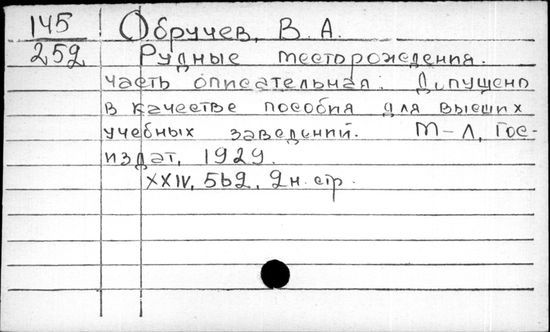 145 Обручев, В. А.
252 Рудные месторождения.
Часть описательная. Допущено
в качестве пособия для высших
учебных заведений. М-Л, Гос-
издат, 1929.
XXIV, 562, 2 н. стр.